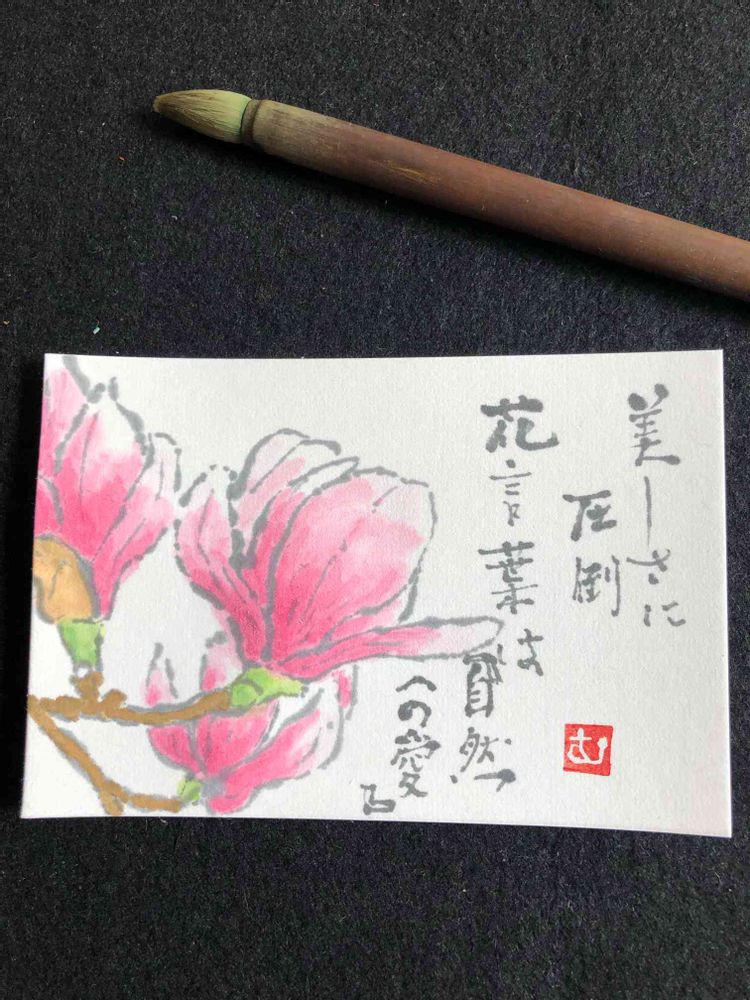 美しさに
圧倒
花言葉は
自然
への愛
む